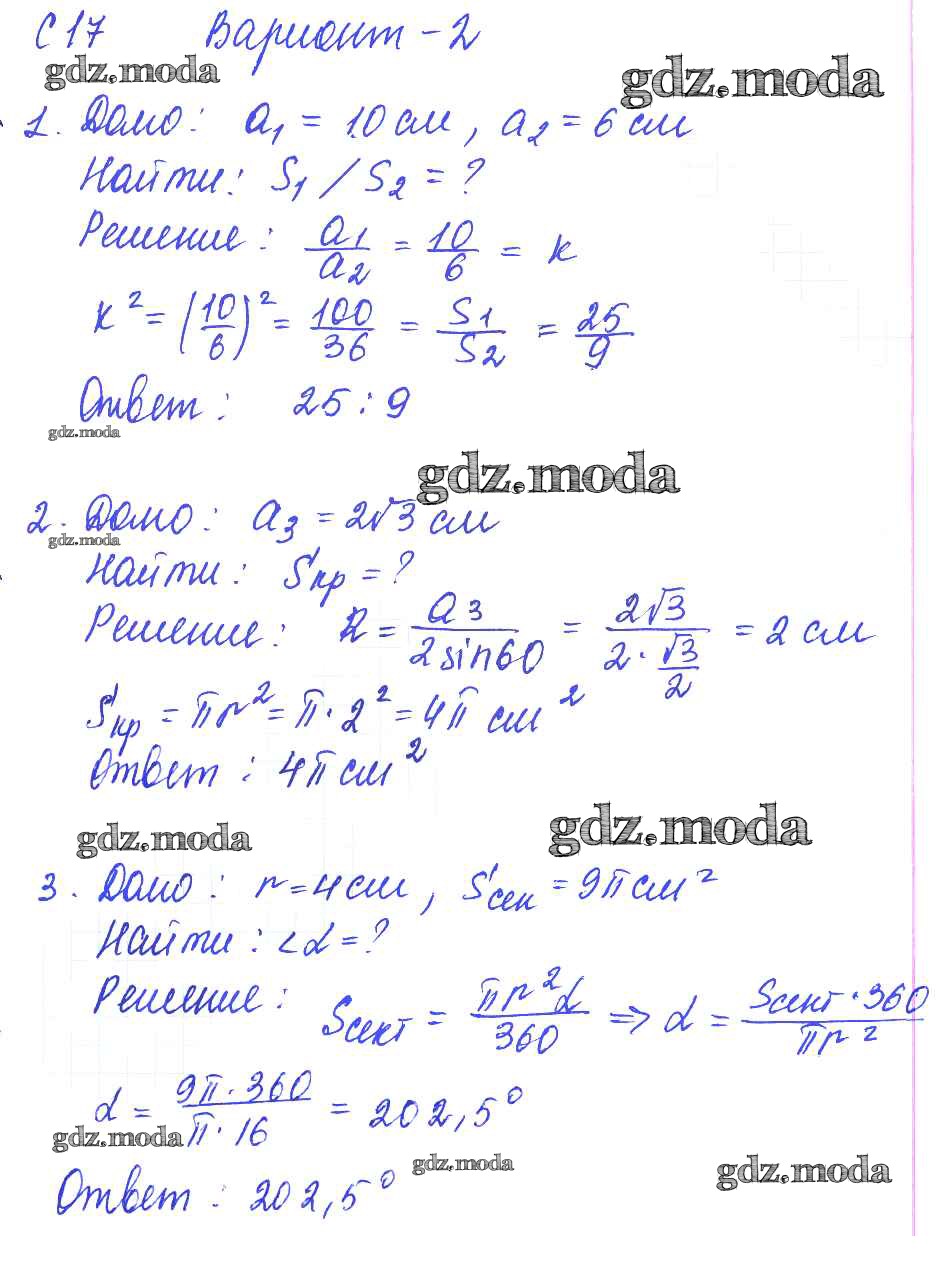 С17 Вариант - 2
gdz.moda gdz.moda
1. Дано: a₁ = 10 см, a₂ = 6 см
Найти: S₁ / S₂ = ?
Решение: a₁/a₂ = 10/6 = к
к² = (10/6)² = 100/36 = S₁/S₂ = 25/9
Ответ: 25 : 9
gdz.moda
gdz.moda
2. Дано: a₃ = 2√3 см
gdz.moda
Найти: Sкр = ?
Решение: R = a₃/(2 sin60) = 2√3/(2·√3/2) = 2 см
Sкр = πr² = π·2² = 4π см²
Ответ: 4π см²
gdz.moda gdz.moda
3. Дано: r = 4 см, Sсек = 9π см²
Найти: <α = ?
Решение: Sсект = πr²α/360 => α = Sсект·360/πr²
α = 9π·360/π·16 = 202,5°
gdz.moda gdz.moda gdz.moda
Ответ: 202,5°